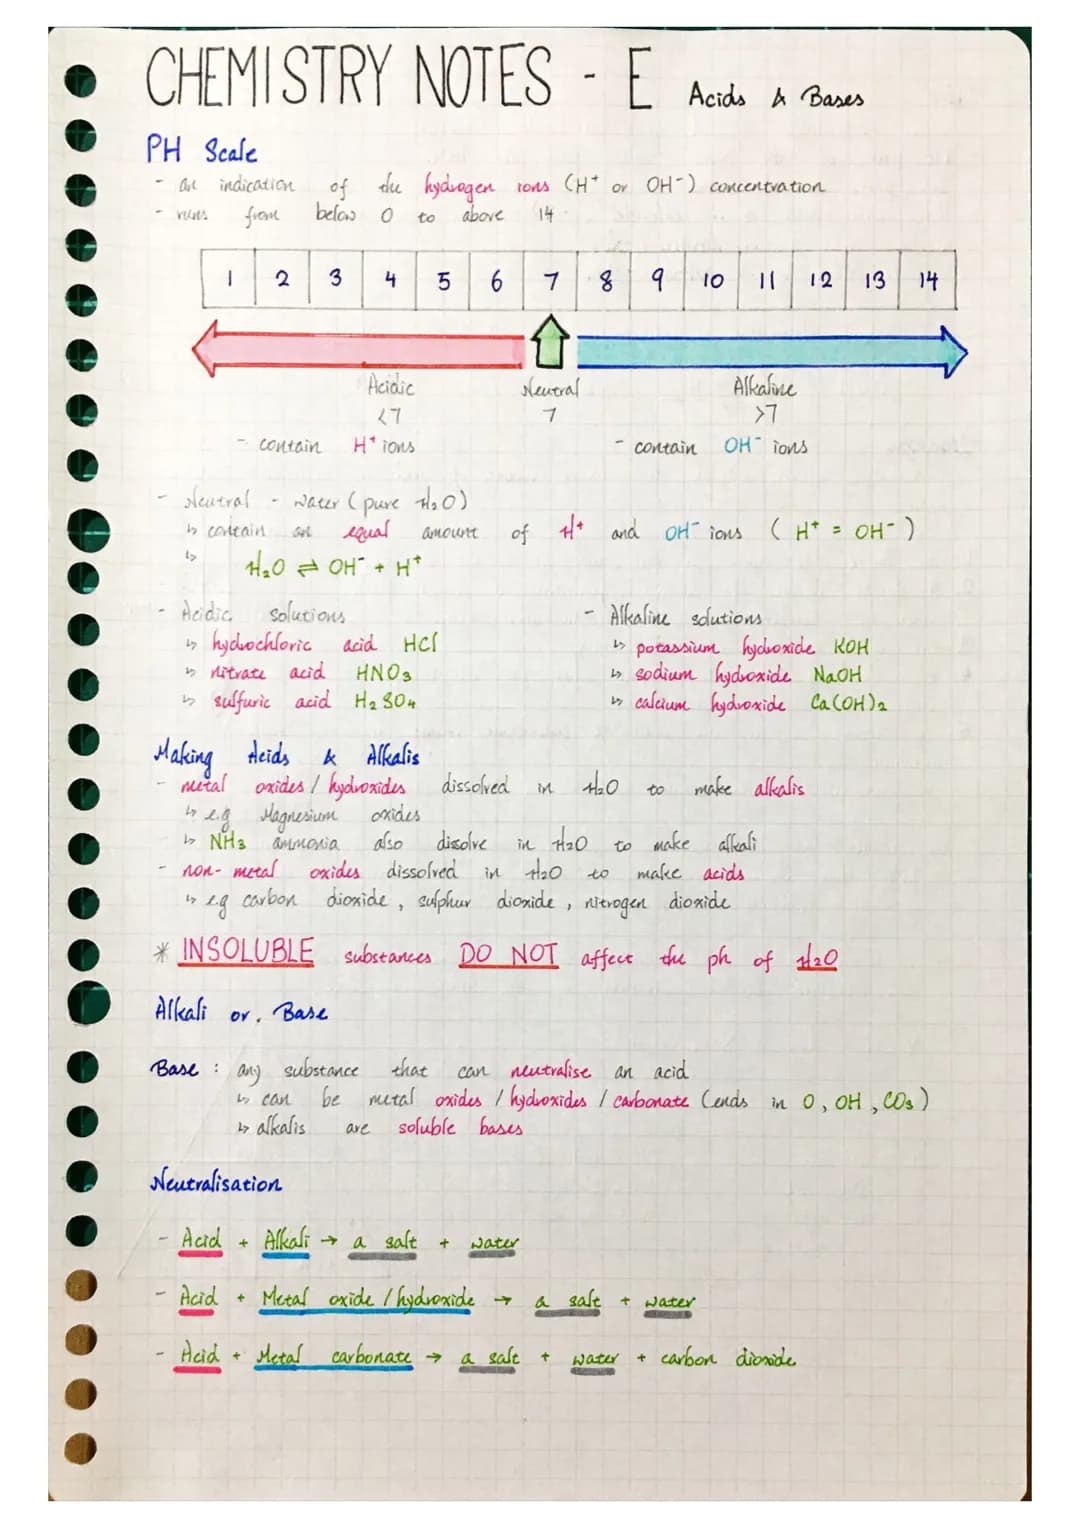 CHEMISTRY NOTES - E Acids & Bases
PH Scale
- an indication of the hydrogen ions (H+ or OH-) concentration
- runs from below 0 to above 14
1 2 3 4 5 6 7 8 9 10 11 12 13 14
Acidic Neutral Alkaline
<7 7 >7
- contain H+ ions - contain OH- ions
- Neutral - water (pure H2O)
↳ contain an equal amount of H+ and OH- ions ( H+ = OH- )
↳ H2O ⇌ OH- + H+
- Acidic solutions - Alkaline solutions
↳ hydrochloric acid HCl ↳ potassium hydroxide KOH
↳ nitrate acid HNO3 ↳ sodium hydroxide NaOH
↳ sulfuric acid H2SO4 ↳ calcium hydroxide Ca(OH)2
Making Acids & Alkalis
- metal oxides / hydroxides dissolved in H2O to make alkalis
↳ e.g Magnesium oxides
↳ NH3 ammonia also dissolve in H2O to make alkali
- non-metal oxides dissolved in H2O to make acids
↳ e.g carbon dioxide, sulphur dioxide, nitrogen dioxide
* INSOLUBLE substances DO NOT affect the ph of H2O
Alkali or. Base
Base : any substance that can neutralise an acid
↳ can be metal oxides / hydroxides / carbonate (ends in O, OH, CO3)
↳ alkalis are soluble bases
Neutralisation
- Acid + Alkali → a salt + water
- Acid + Metal oxide / hydroxide → a salt + water
- Acid + Metal carbonate → a salt + water + carbon dioxide